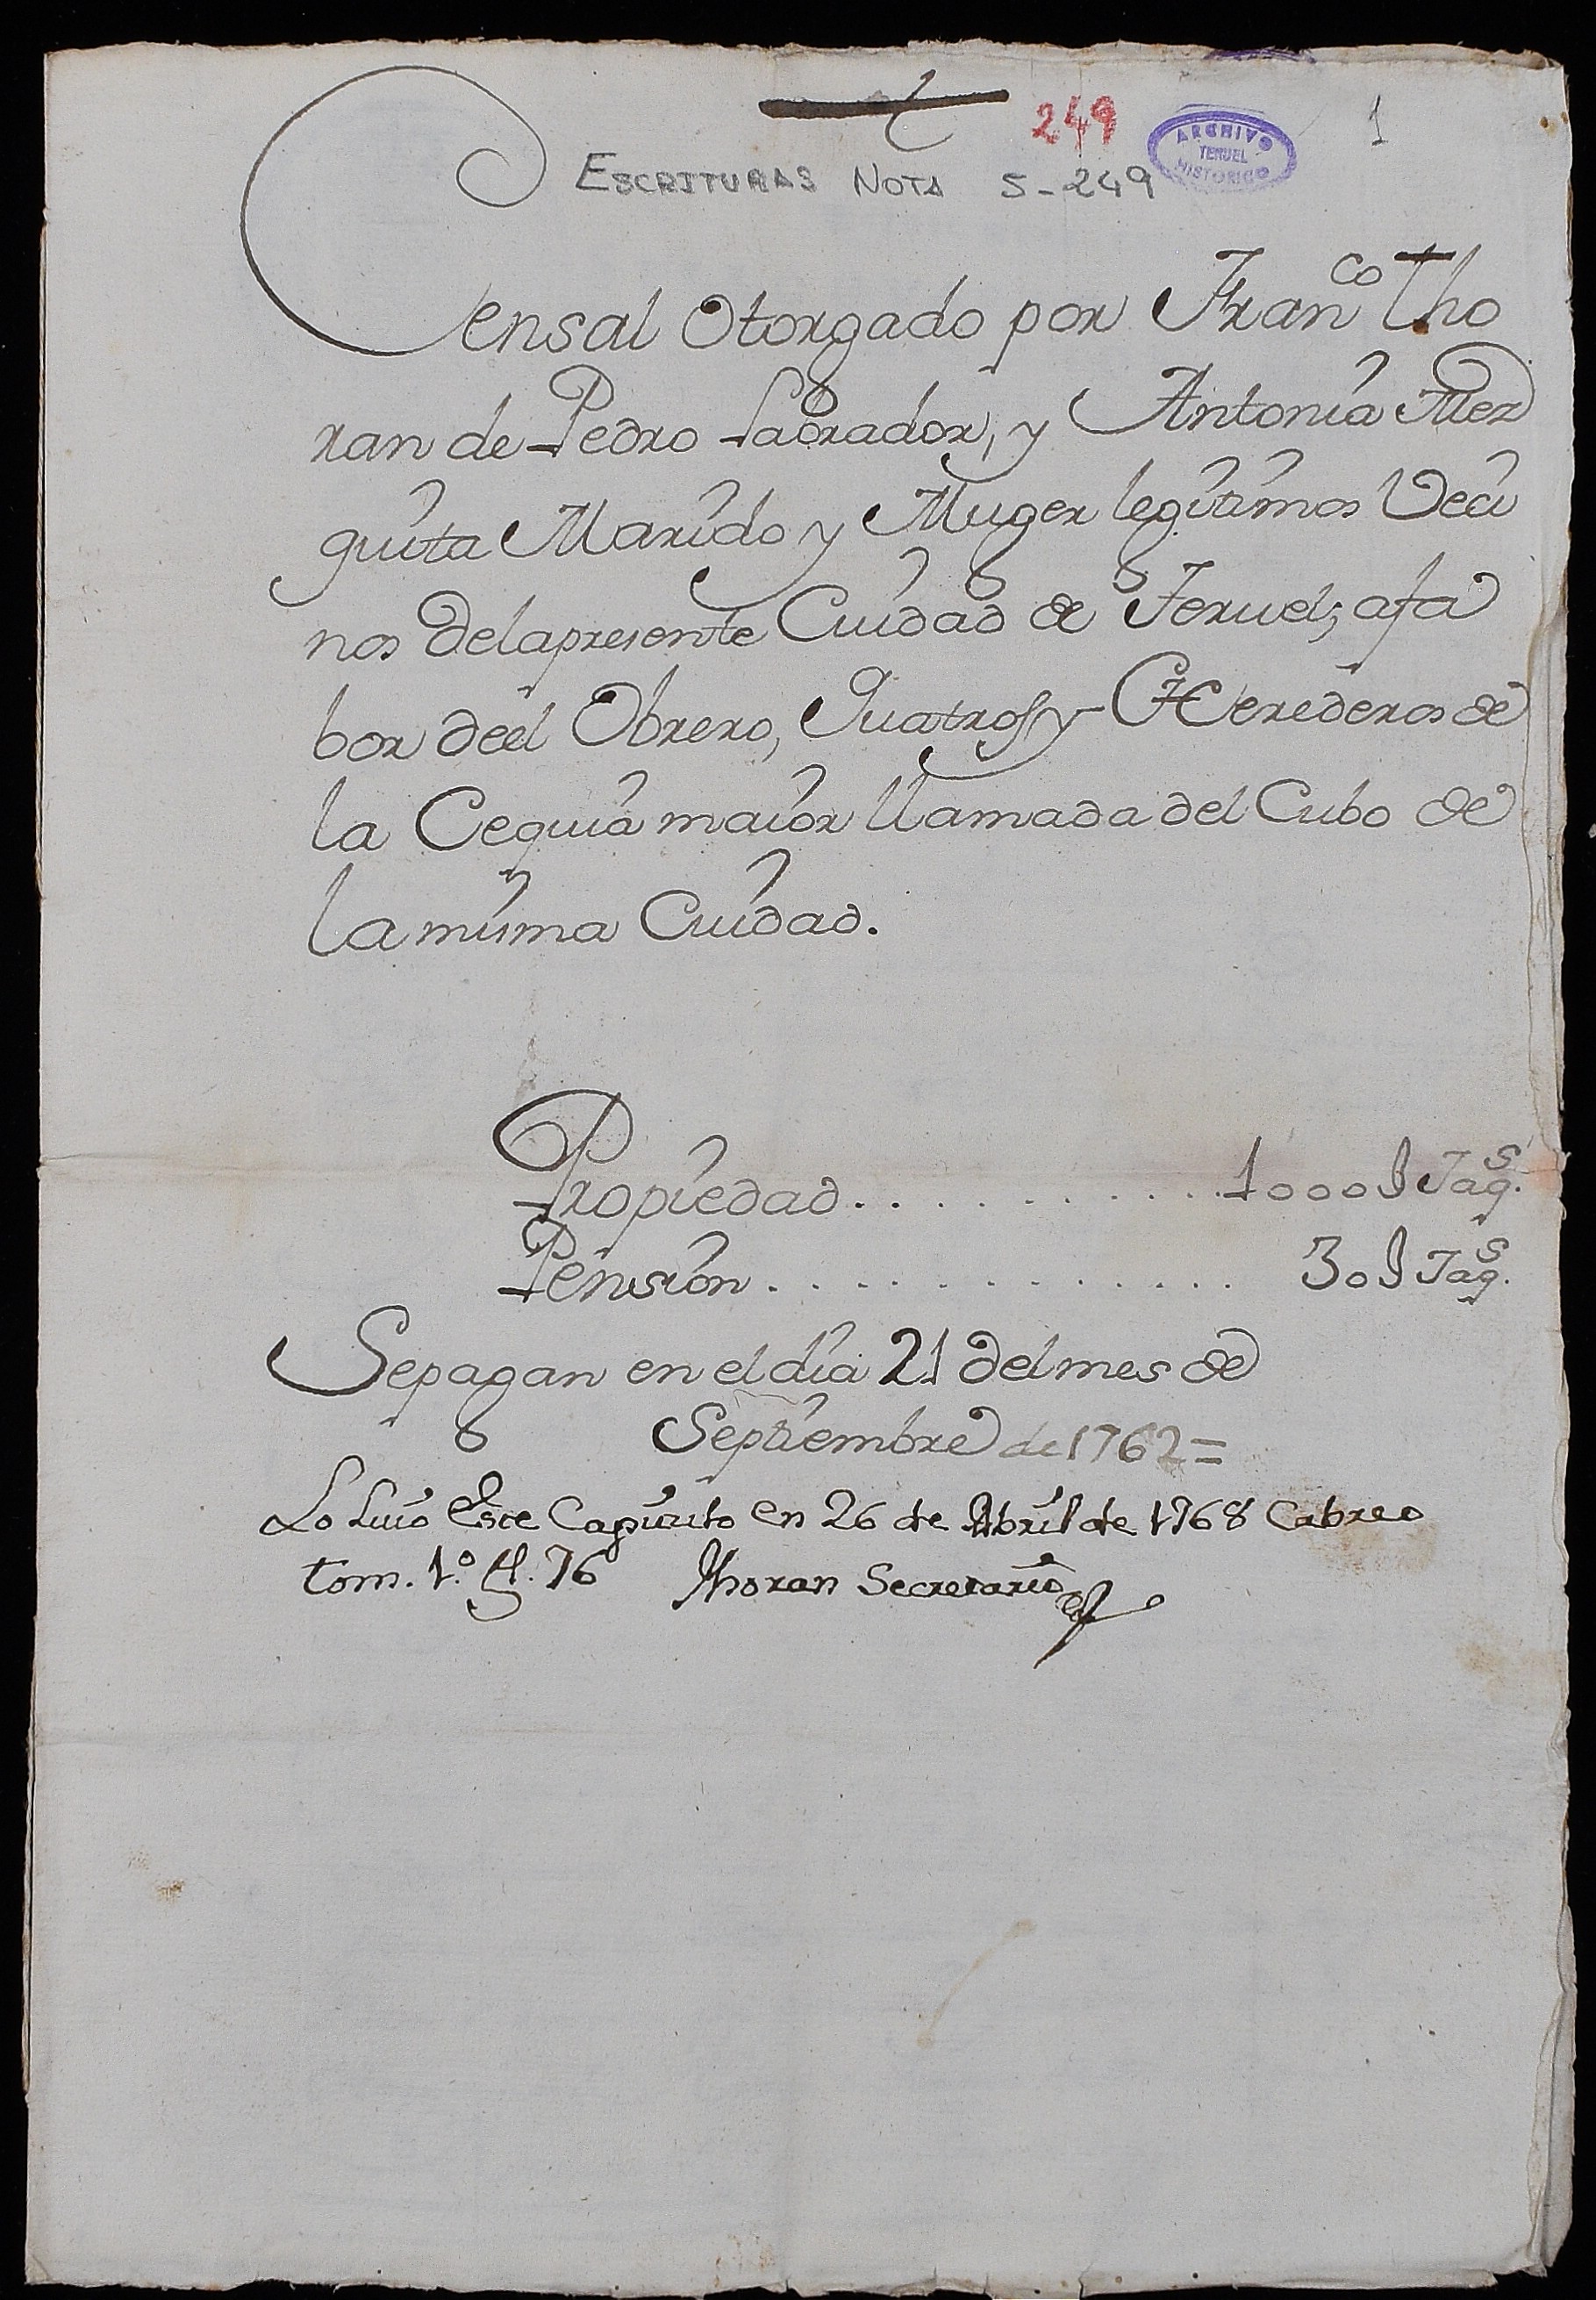 249
ARCHIVO
TERUEL
HISTORICO
1
ESCRITURAS NOTA 5-249
Censal Otorgado por Fran.co Tho
ran de Pedro Labrador, y Antonia Mez
quita Marido y Muger legitimos Veci
nos delapresente Ciudad de Teruel; afa
bor deel Obrero, Quatros, y Herederos de
la Cequia maior llamada del Cubo de
la misma Ciudad.
Propiedad . . . . . . . . . . . 1000 S Jaq.s
Pension . . . . . . . . . . . . . 30 S Jaq.s
Sepagan en el dia 21 del mes de
Septiembre de 1762 =
Lo Luio Este Capitulo en 26 de Abril de 1768 Cabreo
tom. 1.º fl. 76 Thoran Secretario